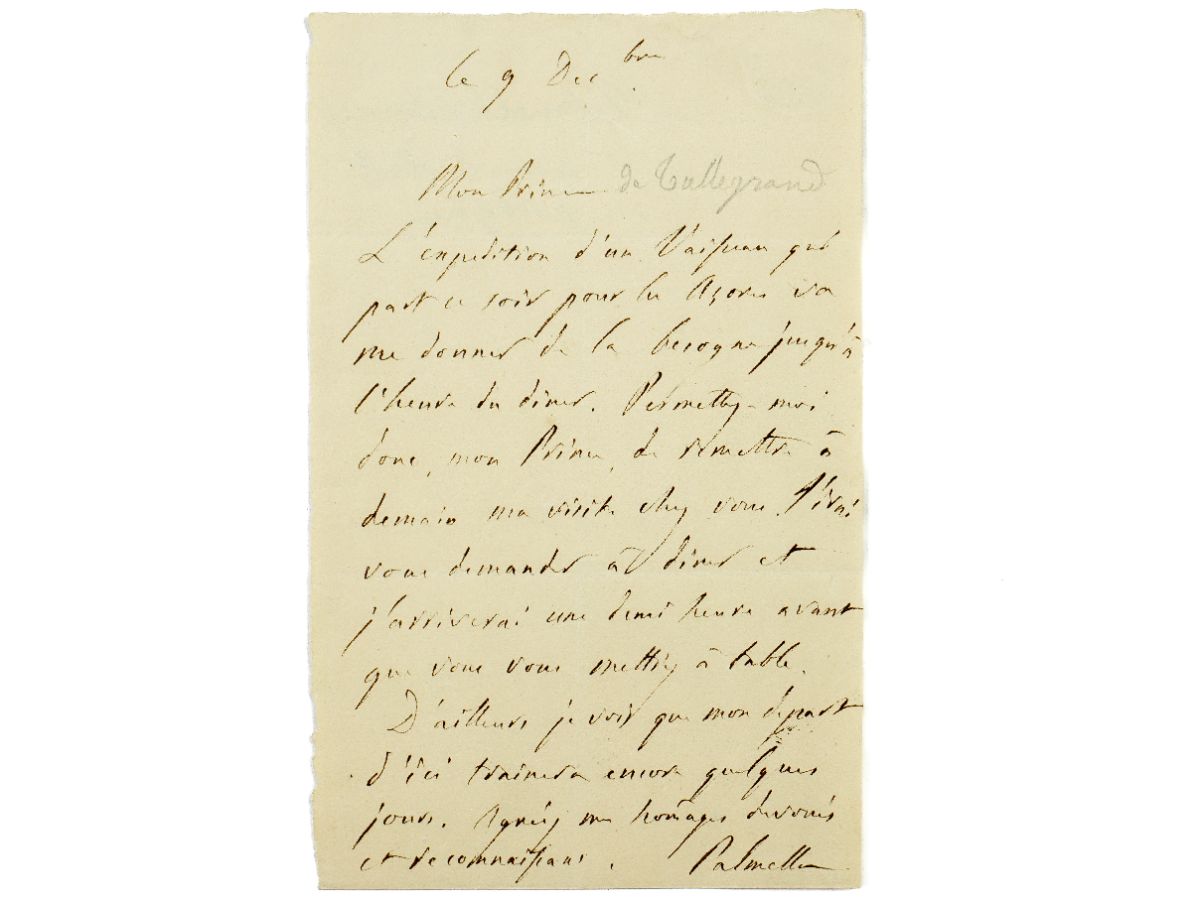 le 9 Dec bre
Mon Prince de Talleyrand
L'expedition d'un Vaisseau qui
part ce soir pour les Açores va
me donner de la besogne jusqu'à
l'heure du diner. Permettez-moi
donc, mon Prince, de remettre à
demain ma visite chez vous. J'irai
vous demander à diner et
j'arriverai une demi heure avant
que vous vous mettiez à table.
D'ailleurs je vois que mon départ
d'ici trainera encore quelques
jours. Agréez mes homages devoués
et reconnaissans. Palmella